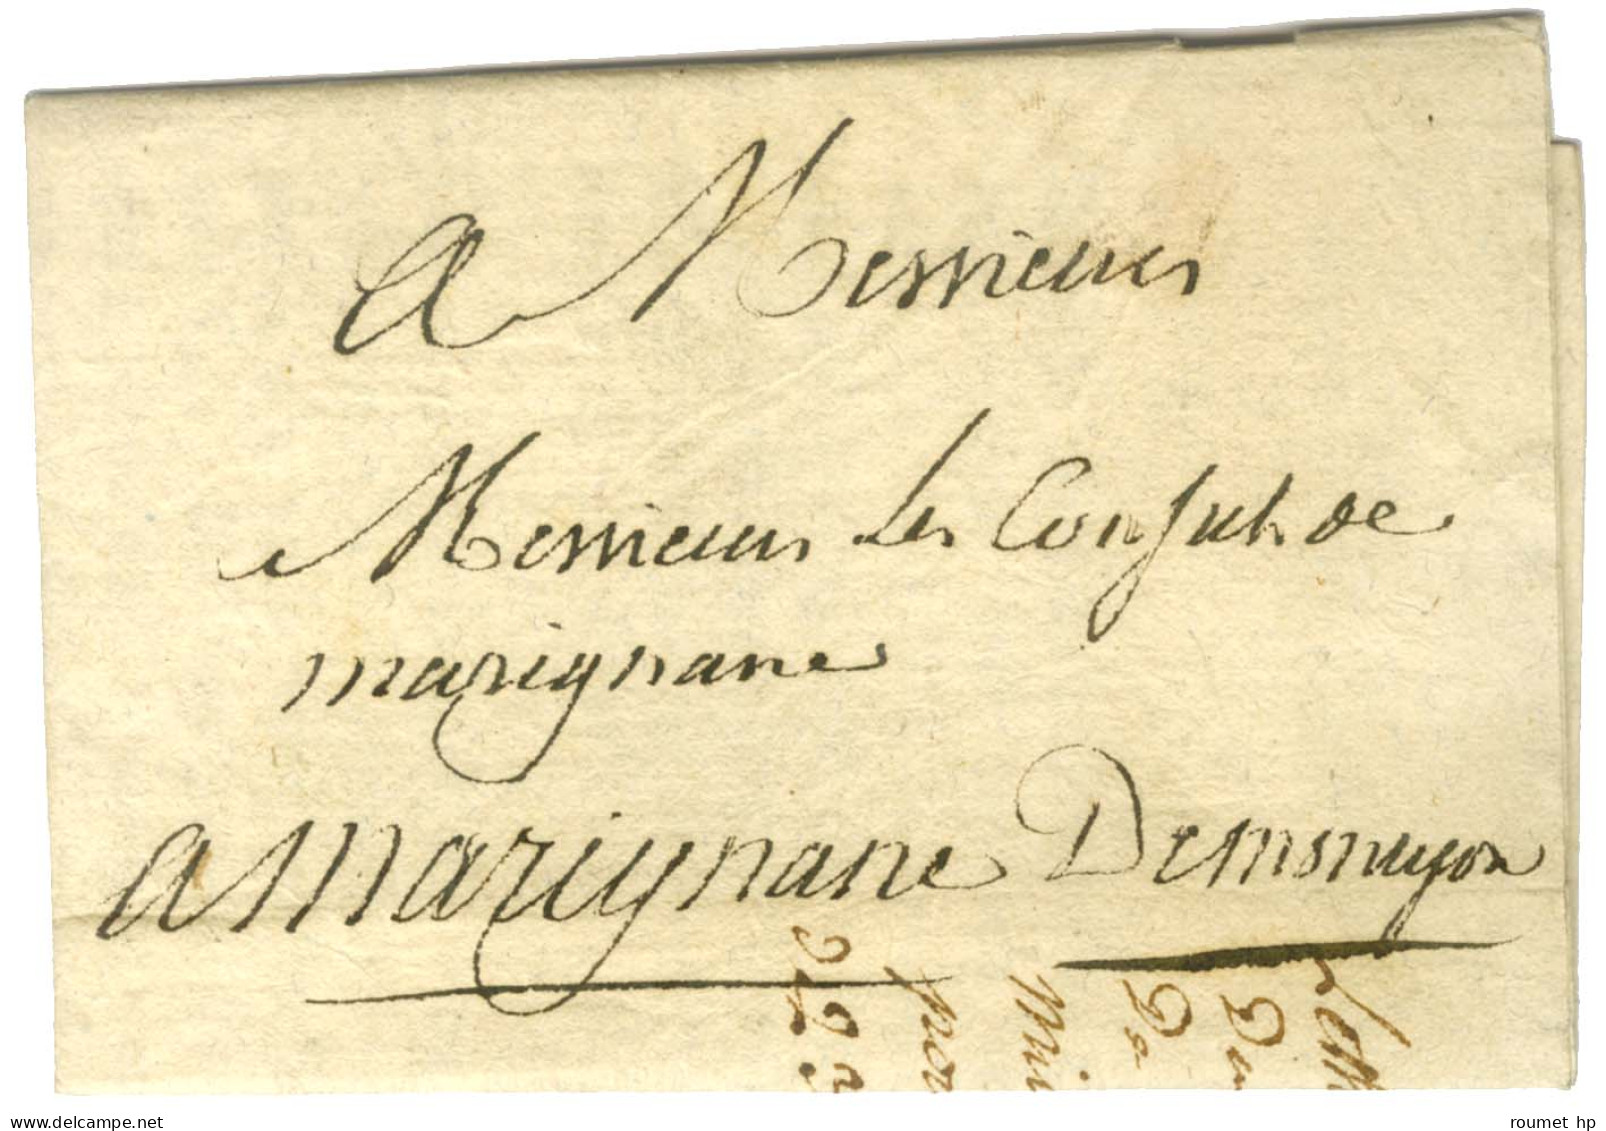 A Messieurs
Messieurs Les Consuls de
marignane
a marignane
www.delcampe.net
roumet hp